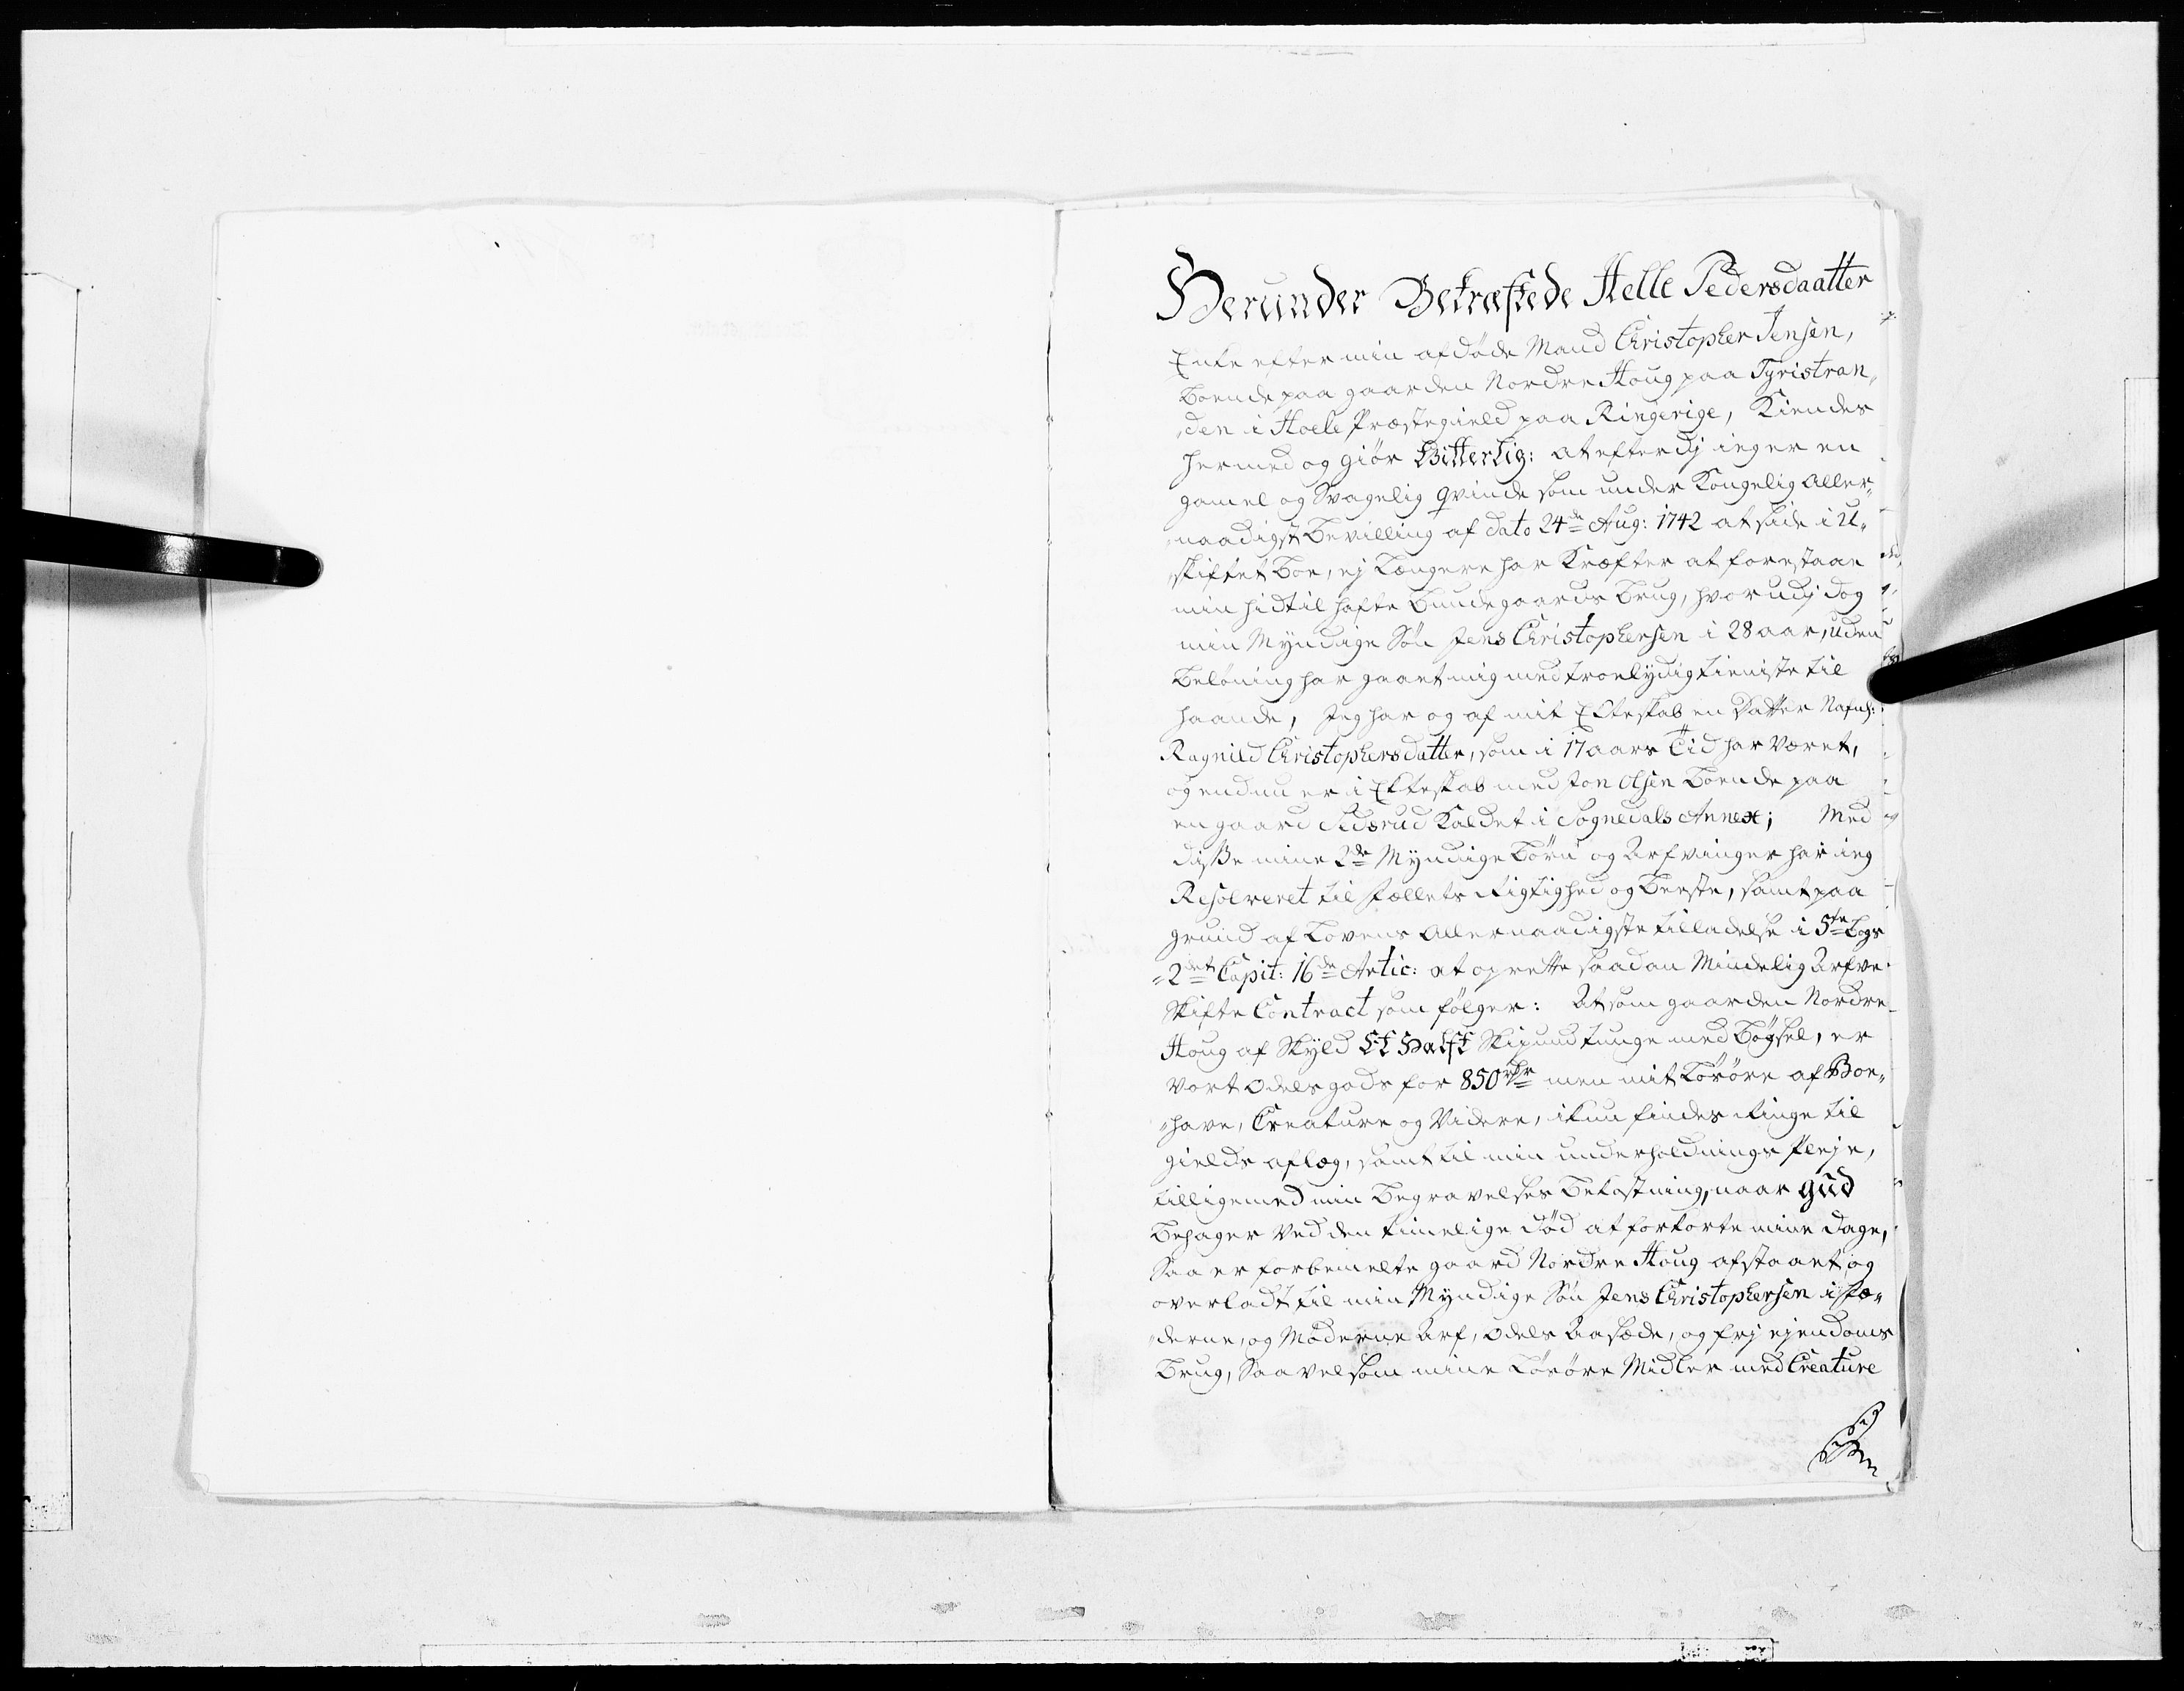 Herunder Bekræftede Helle Pedersdaatter
Enke efter min afdøde Mand Christopher Jensen,
Boende paa gaarden Nordre Houg paa Tyristran„
„den i Hoele Præstegield paa Ringerige, Kiendes
hermed og giør Vitterlig: at efterdj ieg er en
gamel og Svagelig qvinde som under Kongelig Aller„
„naadigst Bevilling af dato 24de Aug: 1742 at side i U„
skiftet Boe, ej Længere har Kræfter at forestaae
min hidtil hafte Bundegaards Brug, hvorudj dog
min Myndige Søn Jens Christophersen i 28 aar, uden
Beløning har gaaet mig med troelydig tieniste til
haande, Jeg har og af mit Ekteskab en Datter Nafnl:
Ragnild Christophersdatter, som i 17 aars Tid har været,
og endnu er i Ekteskab med Jon Olsen Boende paa
en gaard Sidsrud Kaldet i Sognedals Annex; Med
disse mine 2de Myndige Børn og Arfvinger har ieg
Resolveret til fællets rigtighed og Beeste, samt paa
grund af Lovens Allernaadigste tilladelse i 5te Bogs
„2det Capit: 16de Artic: at oprette saadan Mindelig Arfve
Skifte Contract som følger: At som gaarden Nordre
Houg af Skyld Et Halft Skipund tunge med Bøxsel, er
vort Odelsgods for 850 rdr men mit Løsøre af Boe„
„have, Creature og Videre, ikun findes ringe til
gields aflæg, samt til min underholdnings Pleje,
tilligemed min Begravelses Bekostning, naar Gud
Behager Ved den timelige død at forkorte mine dage,
Saa er forbemelte gaard Nordre Houg afstaaet og
overladt til min Myndige Søn Jens Christophersen i Fæ„
„derne, og Møderne Arf, Odels Aasæde, og frj ejendoms
Brug, Saavelsom mine Løsøre Midler med Creature